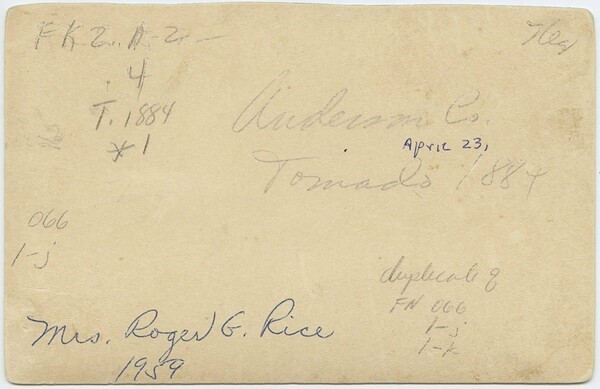 FK2. A-2-
.4
T. 1884
*1
Neg
Anderson Co.
April 23,
Tornado 1884
066
1-j
duplicate of
FN 066
1-j
1-k
Mrs. Roger G. Rice
1959